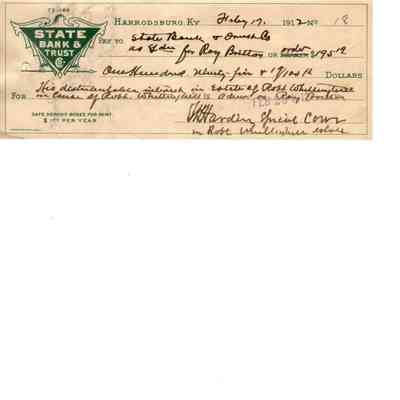 73-166
HARRODSBURG, KY Feby 17, 1912 No 18
STATE BANK & TRUST Co
PAY TO State Bank & Trust Co
as Gdn for Roy Britton OR order $195 12
One Hundred Ninety five & 12/100 DOLLARS
FOR His distributable interest in estate of Robt
in case of Robt adm vs Roy Britton
FEB 20
SAFE DEPOSIT BOXES FOR RENT
$1.00 PER YEAR
Hardin Special Comr
in Robt estate